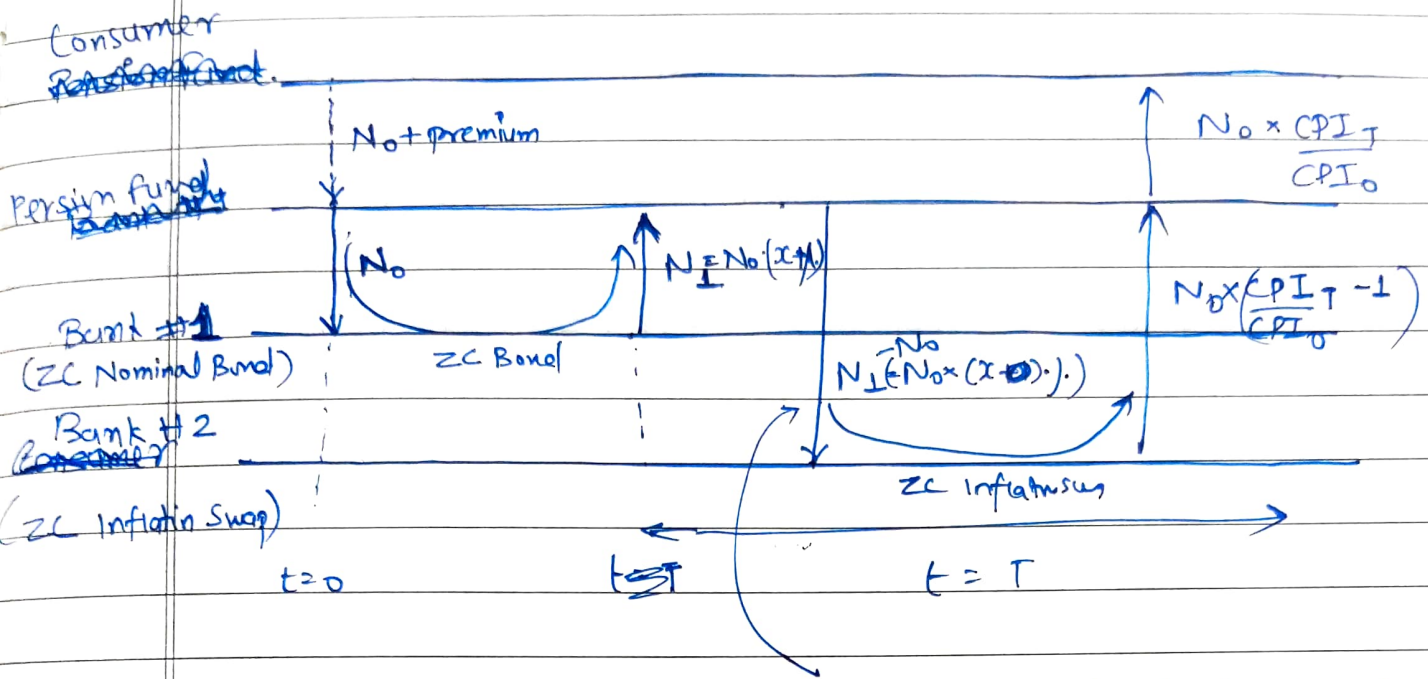 Consumer
N₀ + premium
N₀ × CPI_T
CPI₀
Pension fund
N₀
N₀ × (CPI_T - 1)
CPI₀
Bank #1
(ZC Nominal Bond)
ZC Bond
- N₀
Bank #2
ZC Inflation swap
(ZC Inflation Swap)
t=0
t = T